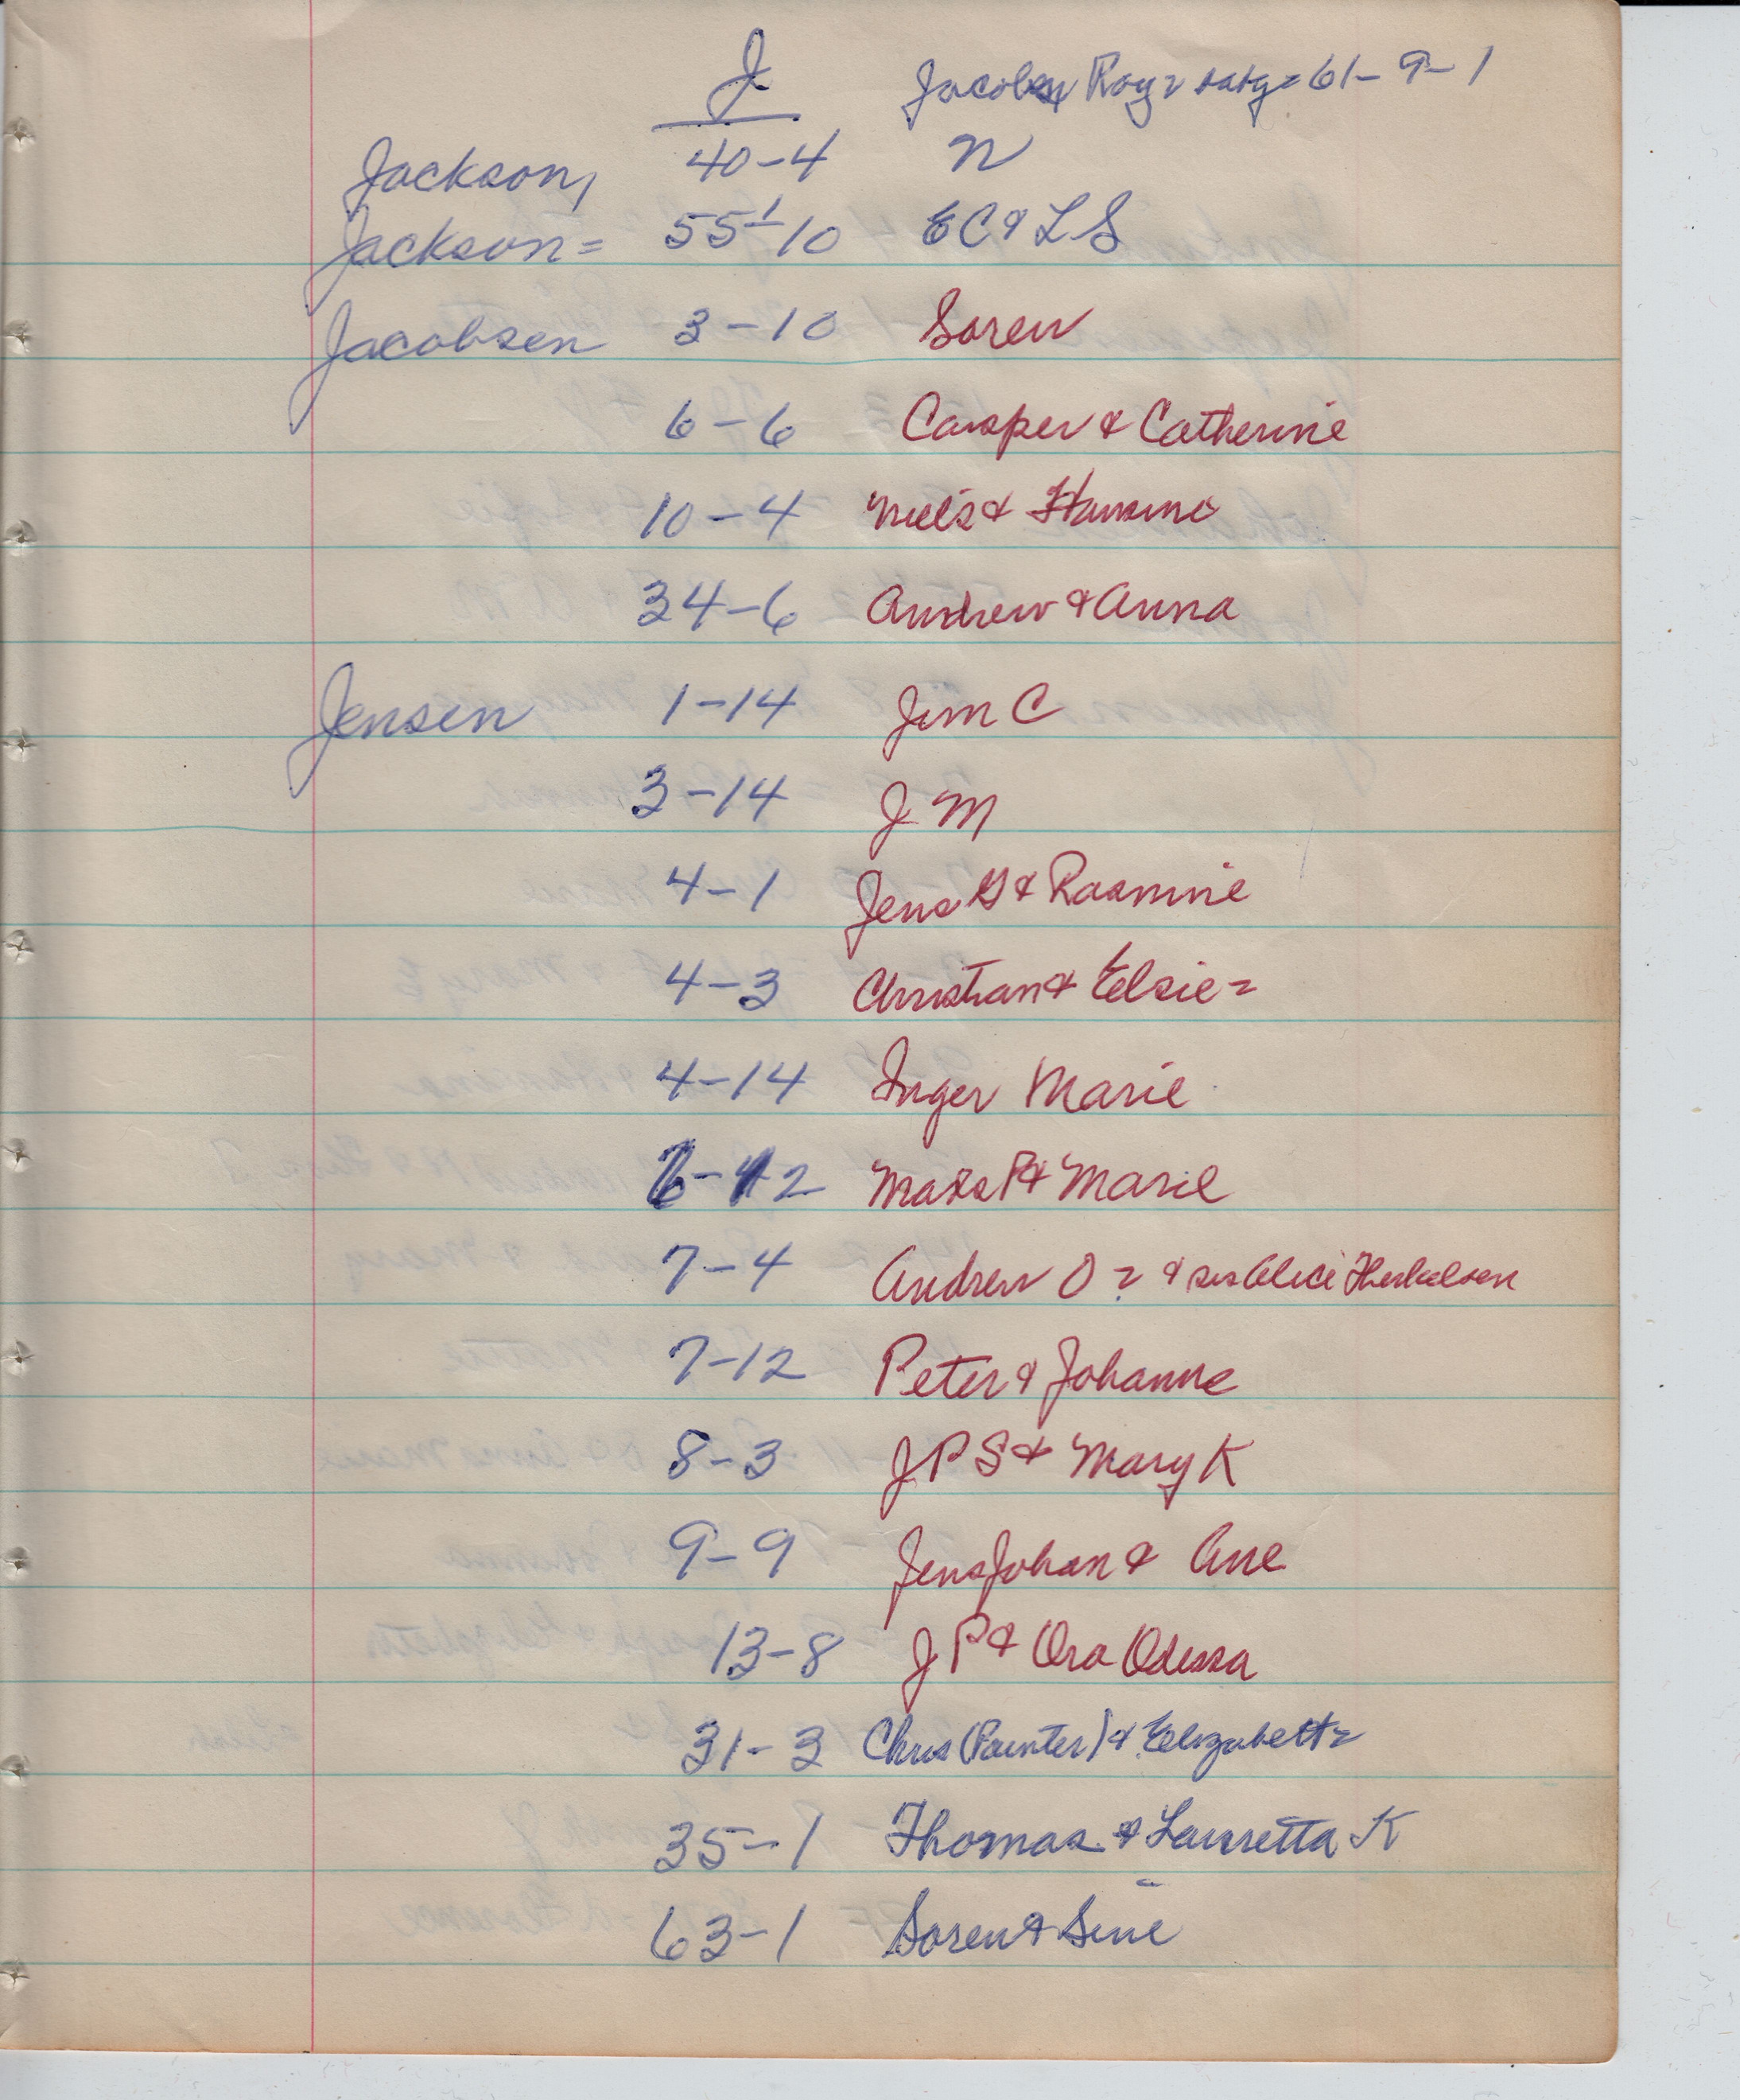 J Jacobsen Roy = 61-9-1
Jackson, 40-4 N
Jackson = 55-10 EC & LS
Jacobsen 3-10 Soren
6-6 Casper & Catherine
10-4 Niels & Hansine
34-6 Andrew & Anna
Jensen 1-14 Jim C
3-14 J M
4-1 Jens G & Rasmine
4-3 Christian & Elsie =
4-14 Inger Marie
6-12 Mads P & Marie
7-4 Andrew O = & sis Alice Therkelsen
7-12 Peter & Johanne
8-3 J P S & Mary K
9-9 Jens Johan & Ane
13-8 J P & Ora Odessa
31-3 Chris (Painter) & Elizabeth =
35-1 Thomas & Laurretta K
63-1 Soren & Sine